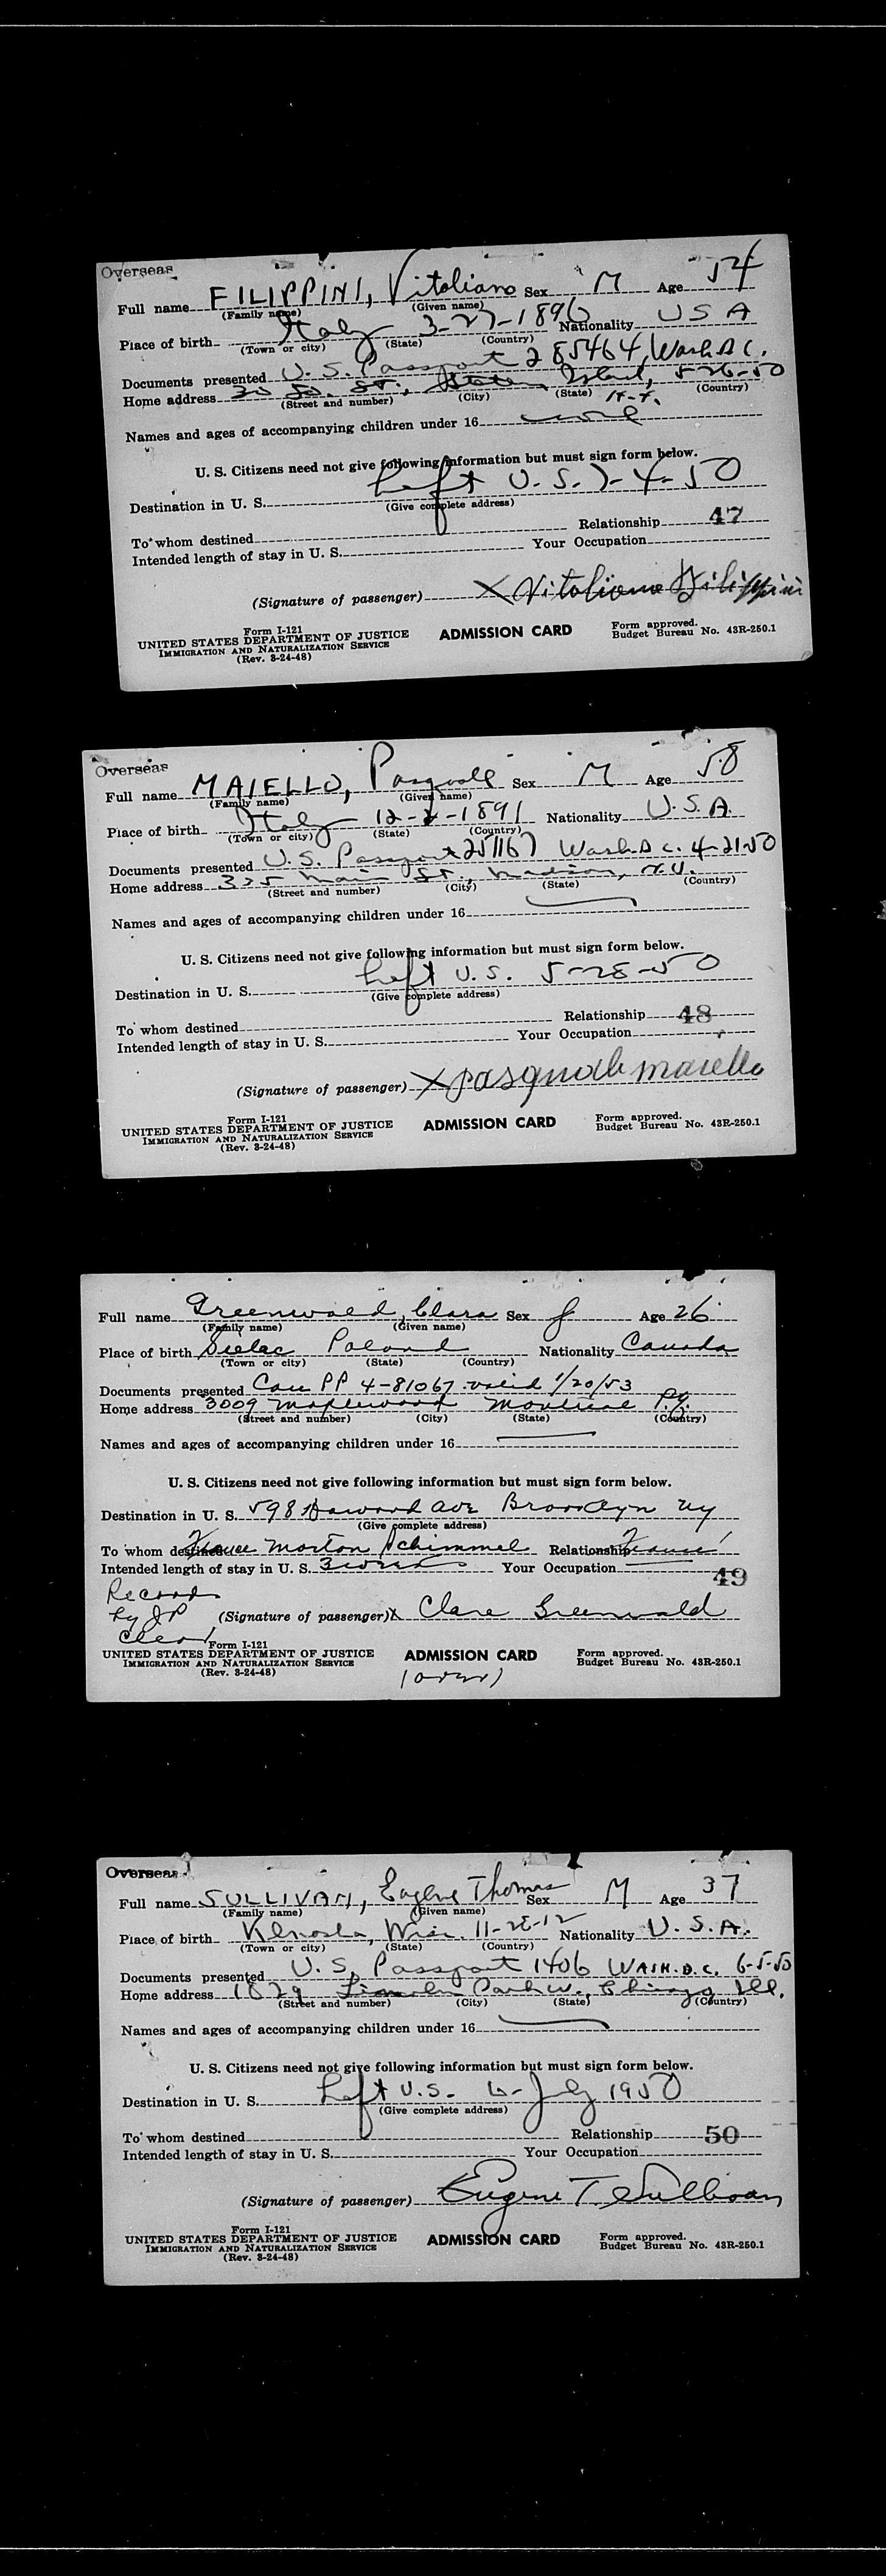 Overseas
Full name FILIPPINI, Vitaliano Sex M Age 54
(Family name) (Given name)
Place of birth Italy 3-27-1896 Nationality USA
(Town or city) (State) (Country)
Documents presented U.S. Passport 285464, Wash. D.C. 5-26-50
Home address St., Staten Island, N.Y.
(Street and number) (City) (State) (Country)
Names and ages of accompanying children under 16 none
U. S. Citizens need not give following information but must sign form below.
Destination in U. S. Left U.S. 7-4-50
(Give complete address)
To whom destined Relationship 47
Intended length of stay in U. S. Your Occupation
(Signature of passenger) X Vitaliano Filippini
Form I-121
UNITED STATES DEPARTMENT OF JUSTICE
IMMIGRATION AND NATURALIZATION SERVICE
(Rev. 3-24-48)
ADMISSION CARD
Form approved.
Budget Bureau No. 43R-250.1
Overseas
Full name MAIELLO, Pasquale Sex M Age 58
(Family name) (Given name)
Place of birth Italy 12-2-1891 Nationality U.S.A.
(Town or city) (State) (Country)
Documents presented U.S. Passport 251167 Wash D.C. 4-21-50
Home address 325 Main St., Madison, N.J.
(Street and number) (City) (State) (Country)
Names and ages of accompanying children under 16
U. S. Citizens need not give following information but must sign form below.
Destination in U. S. Left U.S. 5-28-50
(Give complete address)
To whom destined Relationship 48
Intended length of stay in U. S. Your Occupation
(Signature of passenger) X pasquale maiello
Form I-121
UNITED STATES DEPARTMENT OF JUSTICE
IMMIGRATION AND NATURALIZATION SERVICE
(Rev. 3-24-48)
ADMISSION CARD
Form approved.
Budget Bureau No. 43R-250.1
Full name Greenwald, Clara Sex f Age 26
(Family name) (Given name)
Place of birth Sielec Poland Nationality Canada
(Town or city) (State) (Country)
Documents presented Can PP 4-81067 valid 1/20/53
Home address 3009 Maplewood Montreal P.Q.
(Street and number) (City) (State) (Country)
Names and ages of accompanying children under 16
U. S. Citizens need not give following information but must sign form below.
Destination in U. S. 598 Howard Ave Brooklyn NY
(Give complete address)
To whom destined Morton Schimmel Relationship
Intended length of stay in U. S. 3 weeks Your Occupation 49
Record
by JP (Signature of passenger) X Clare Greenwald
Form I-121
UNITED STATES DEPARTMENT OF JUSTICE
IMMIGRATION AND NATURALIZATION SERVICE
(Rev. 3-24-48)
ADMISSION CARD
(over)
Form approved.
Budget Bureau No. 43R-250.1
Overseas
Full name SULLIVAN, Eugene Thomas Sex M Age 37
(Family name) (Given name)
Place of birth Kenosha, Wisc. 11-28-12 Nationality U.S.A.
(Town or city) (State) (Country)
Documents presented U.S. Passport 1406 WASH. D.C. 6-5-50
Home address 1829 Lincoln Park W., Chicago Ill.
(Street and number) (City) (State) (Country)
Names and ages of accompanying children under 16
U. S. Citizens need not give following information but must sign form below.
Destination in U. S. Left U.S. 6-July 1950
(Give complete address)
To whom destined Relationship 50
Intended length of stay in U. S. Your Occupation
(Signature of passenger) Eugene T Sullivan
Form I-121
UNITED STATES DEPARTMENT OF JUSTICE
IMMIGRATION AND NATURALIZATION SERVICE
(Rev. 3-24-48)
ADMISSION CARD
Form approved.
Budget Bureau No. 43R-250.1